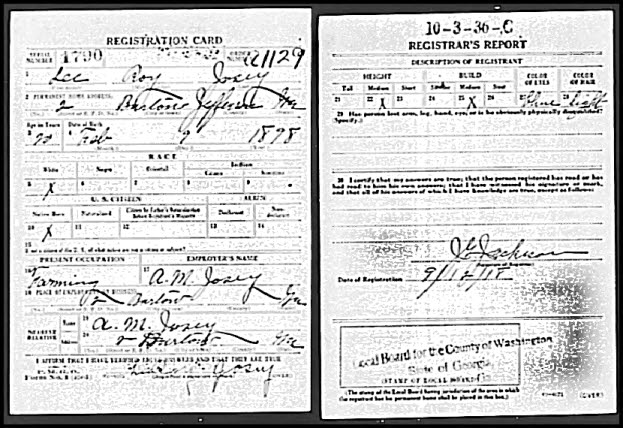 REGISTRATION CARD
SERIAL NUMBER 1790 ORDER NUMBER A1129
1 Lee Roy Josey
2 PERMANENT HOME ADDRESS:
2 Bartow Jefferson Ga
Age in Years Date of Birth
20 Feb 9 1898
RACE
White Negro Oriental Indian
Citizen Noncitizen
5 X 6 7 8 9
U. S. CITIZEN ALIEN
Native Born Naturalized Citizen by Father's Naturalization Before Registrant's Majority Declarant Non-declarant
10 X 11 12 13 14
15
If not a citizen of the U. S., of what nation are you a citizen or subject?
PRESENT OCCUPATION EMPLOYER'S NAME
16 Farming 17 A. M. Josey
18 PLACE OF EMPLOYMENT OR BUSINESS:
2 Bartow Ga
NEAREST RELATIVE Name 19 A. M. Josey
Address 20 2 Bartow Ga
I AFFIRM THAT I HAVE VERIFIED ABOVE ANSWERS AND THAT THEY ARE TRUE
P. M. G. O.
Form No. 1 Josey
10-3-36-C
REGISTRAR'S REPORT
DESCRIPTION OF REGISTRANT
HEIGHT BUILD COLOR OF EYES COLOR OF HAIR
Tall Medium Short Slender Medium Stout
21 22 X 23 24 25 X 26 27 Blue 28 Light
29 Has person lost arm, leg, hand, eye, or is he obviously physically disqualified?
Specify.)
30 I certify that my answers are true; that the person registered has read or has
had read to him his own answers; that I have witnessed his signature or mark,
and that all of his answers of which I have knowledge are true, except as follows:
Jackson
Date of Registration 9/12/18
Local Board for the County of Washington
State of Georgia
(STAMP OF LOCAL BOARD)
(The stamp of the Local Board having jurisdiction of the area in which
the registrant has his permanent home shall be placed in this box.)
(OVER)